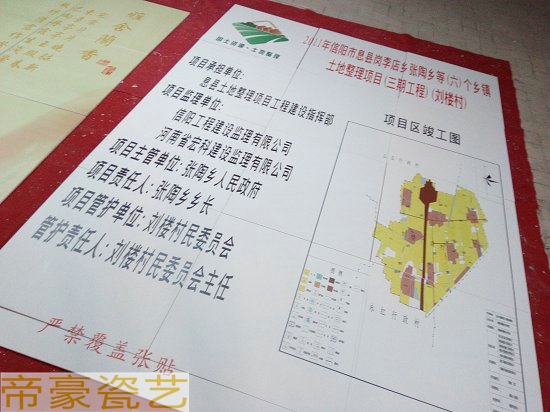 雅舍闻香
国土资源·土地整理
2011年信阳市息县岗李店乡张陶乡等(六)个乡镇
土地整理项目(三期工程)(刘楼村)
项目承担单位:
息县土地整理项目工程建设指挥部
项目监理单位:
信阳工程建设监理有限公司
河南省宏科建设监理有限公司
项目主管单位: 张陶乡人民政府
项目责任人: 张陶乡乡长
项目管护单位: 刘楼村民委员会
管护责任人: 刘楼村民委员会主任
严禁覆盖张贴
项目区竣工图
图例
行政村
帝豪瓷艺